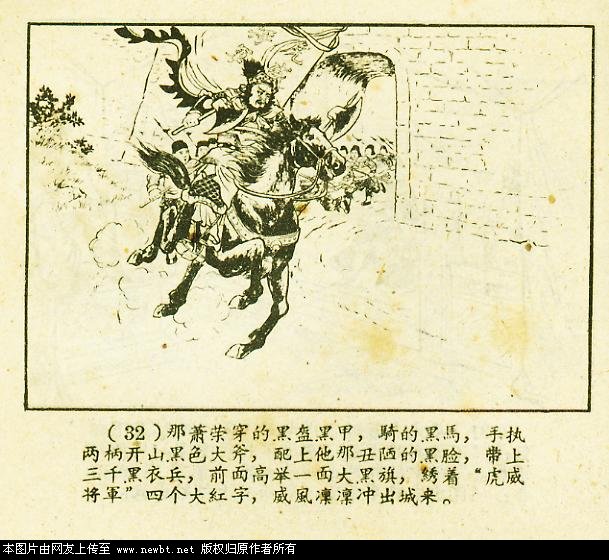 (32)那蕭荣穿的黑盔黑甲，騎的黑馬，手执
两柄开山黑色大斧，配上他那丑陋的黑脸，带上
三千黑衣兵，前面高举一面大黑旗，綉着“虎威
将軍”四个大紅字，威風凜凜冲出城来。
本图片由网友上传至 www.newbt.net 版权归原作者所有